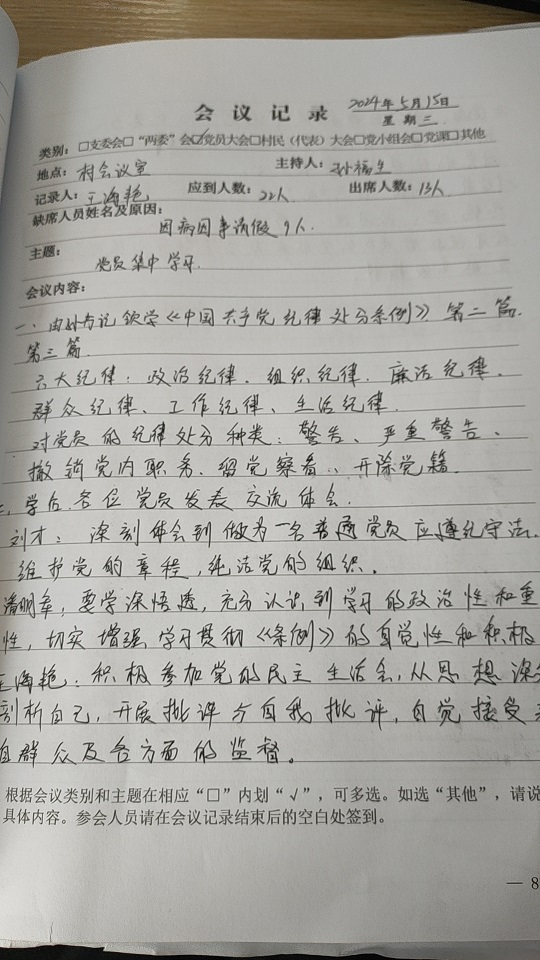 会议记录 2024年5月15日
星期三
类别：□支委会□“两委”会☑党员大会□村民（代表）大会□党小组会□党课□其他
地点：村会议室 主持人：孙福生
记录人：王海艳 应到人数：22人 出席人数：13人
缺席人员姓名及原因：
因病因事请假9人.
主题：
党员集中学习.
会议内容：
一、由孙书记领学《中国共产党纪律处分条例》第二篇.
第三篇.
六大纪律：政治纪律、组织纪律、廉洁纪律、
群众纪律、工作纪律、生活纪律.
对党员的纪律处分种类：警告、严重警告、
撤销党内职务、留党察看、开除党籍.
二、学后各位党员发表交流体会.
刘才：深刻体会到做为一名普通党员应遵纪守法、
维护党的章程，纯洁党的组织.
潘明军，要学深悟透，充分认识到学习的政治性和重
性，切实增强学习贯彻《条例》的自觉性和积极
王海艳：积极参加党的民主生活会，从思想深
剖析自己，开展批评与自我批评，自觉接受
自群众及各方面的监督。
根据会议类别和主题在相应“□”内划“√”，可多选。如选“其他”，请说
具体内容。参会人员请在会议记录结束后的空白处签到。
— 8